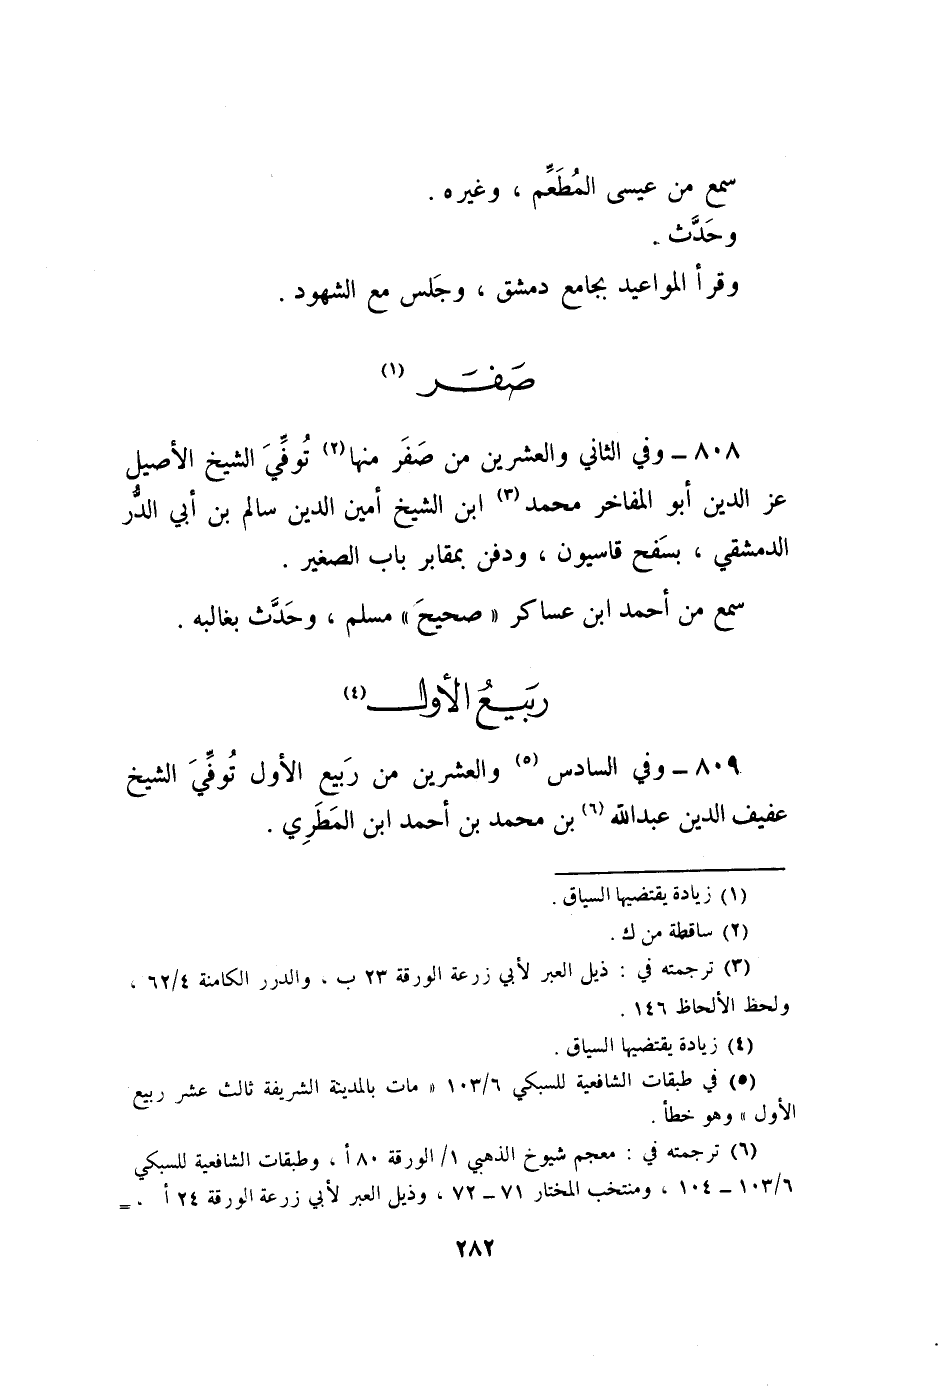 سمع من عيسى المُطَعِّم ، وغيره .
وحَدَّث .
وقرأ المواعيد بجامع دمشق ، وجَلس مع الشهود .
صَفَر (١)
٨٠٨ ــ وفي الثاني والعشرين من صَفَر منها(٢) تُوفِّيَ الشيخ الأصيل
عز الدين أبو المفاخر محمد(٣) ابن الشيخ أمين الدين سالم بن أبي الدُّر
الدمشقي ، بسَفح قاسيون ، ودفن بمقابر باب الصغير .
سمع من أحمد ابن عساكر « صحيحَ » مسلم ، وحَدَّث بغالبه .
رَبيعُ الأول (٤)
٨٠٩ ــ وفي السادس (٥) والعشرين من رَبيع الأول تُوفِّيَ الشيخ
عفيف الدين عبدالله (٦) بن محمد بن أحمد ابن المَطَرِي .
(١) زيادة يقتضيها السياق .
(٢) ساقطة من ك .
(٣) ترجمته في : ذيل العبر لأبي زرعة الورقة ٢٣ ب ، والدرر الكامنة ٦٢/٤ ،
ولحظ الألحاظ ١٤٦ .
(٤) زيادة يقتضيها السياق .
(٥) في طبقات الشافعية للسبكي ١٠٣/٦ « مات بالمدينة الشريفة ثالث عشر ربيع
الأول » وهو خطأ .
(٦) ترجمته في : معجم شيوخ الذهبي ١/ الورقة ٨٠ أ ، وطبقات الشافعية للسبكي
١٠٣/٦ ــ ١٠٤ ، ومنتخب المختار ٧١ ــ ٧٢ ، وذيل العبر لأبي زرعة الورقة ٢٤ أ ، =
٢٨٢